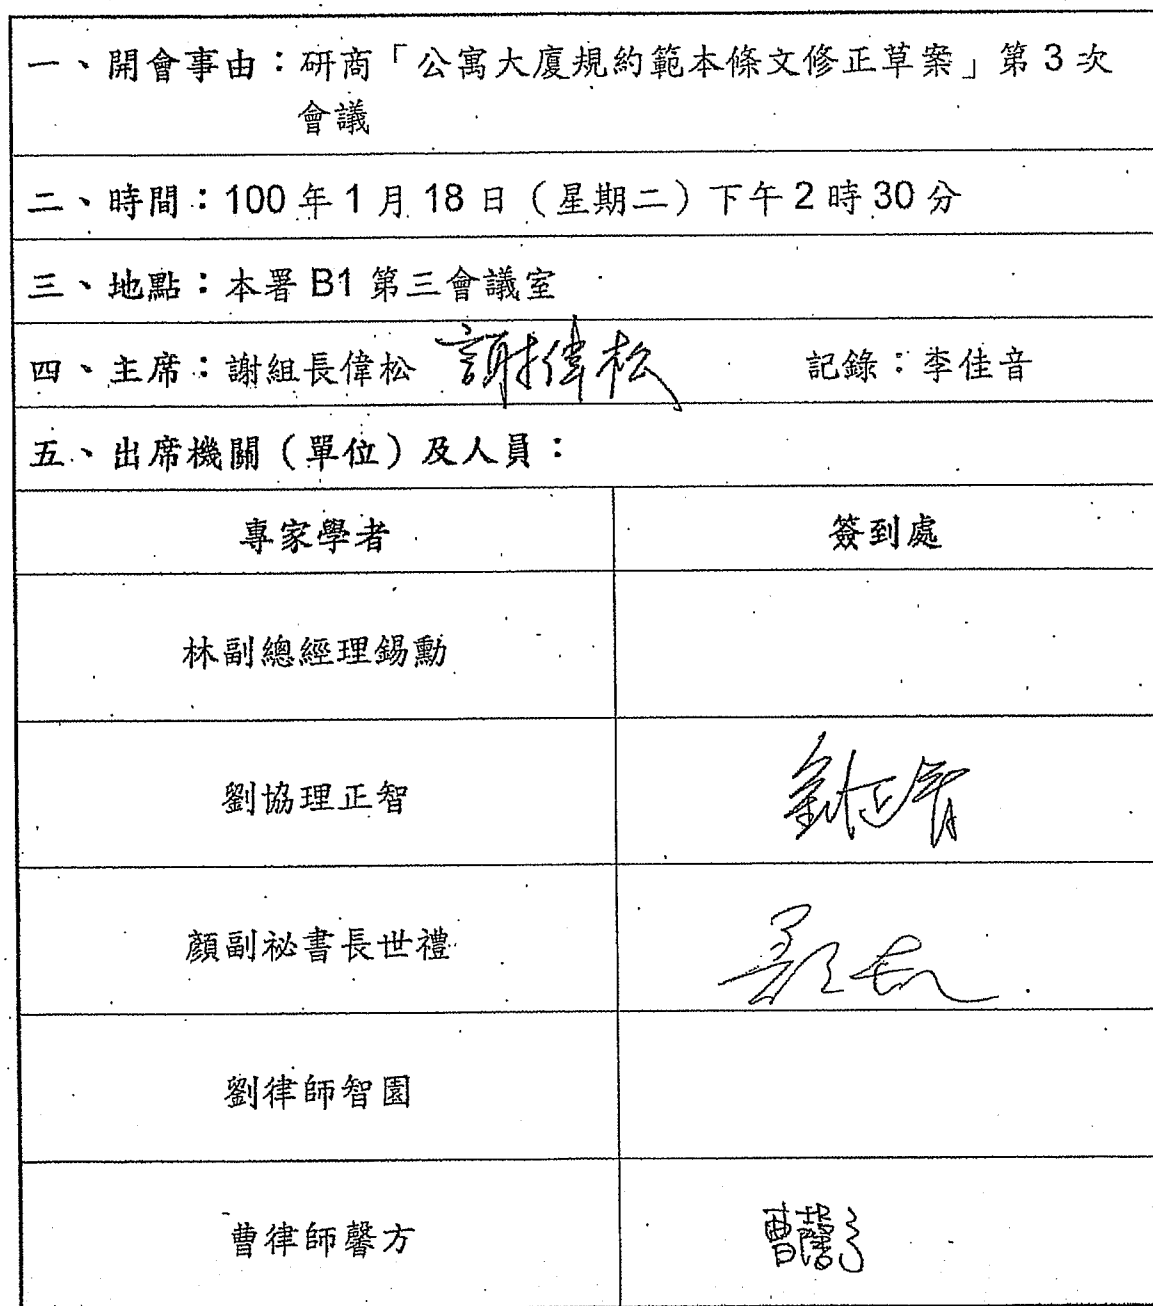 一、開會事由：研商「公寓大廈規約範本條文修正草案」第 3 次
會議
二、時間：100 年 1 月 18 日（星期二）下午 2 時 30 分
三、地點：本署 B1 第三會議室
四、主席：謝組長偉松 謝偉松 記錄：李佳音
五、出席機關（單位）及人員：
專家學者 簽到處
林副總經理錫勳
劉協理正智 劉正智
顏副祕書長世禮
劉律師智園
曹律師馨方 曹馨方